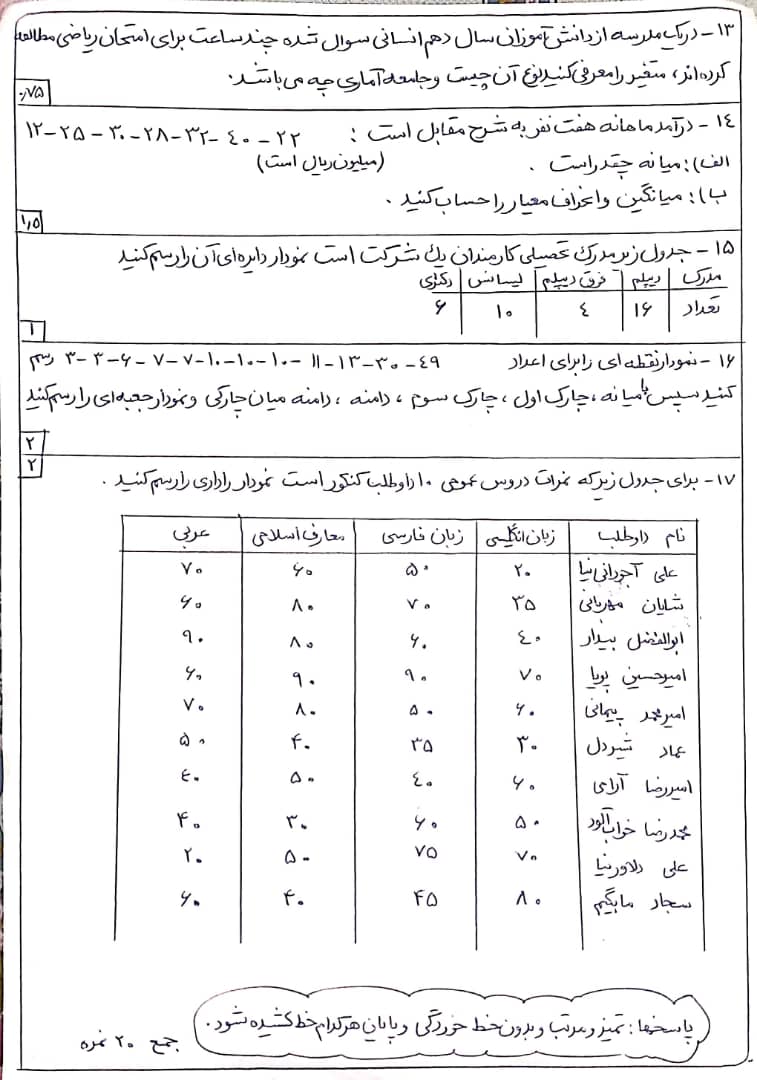 ۱۳- در یک مدرسه از دانش آموزان سال دهم انسانی سوال شده چند ساعت برای امتحان ریاضی مطالعه
کرده اند، متغیر را معرفی کنید نوع آن چیست و جامعه آماری چه می باشد.
۰٫۷۵
۱۴- درآمد ماهانه هفت نفر به شرح مقابل است : ۲۲ - ۴۰ - ۳۲ - ۲۸ - ۳۰ - ۲۵ - ۱۲
الف): میانه چقدر است . (میلیون ریال است)
ب): میانگین و انحراف معیار را حساب کنید .
۱٫۵
۱۵- جدول زیر مدرک تحصیلی کارمندان یک شرکت است نمودار دایره ای آن را رسم کنید
مدرک دیپلم فوق دیپلم لیسانس دکتری
تعداد ۱۶ ۴ ۱۰ ۶
۱
۱۶- نمودار نقطه ای را برای اعداد ۴۹ - ۳۰ - ۱۳ - ۱۱ - ۱۰ - ۱۰ - ۱۰ - ۷ - ۷ - ۶ - ۳ - ۳ رسم
کنید سپس با میانه، چارک اول، چارک سوم، دامنه، دامنه میان چارکی و نمودار جعبه ای را رسم کنید
۲
۲
۱۷- برای جدول زیر که نمرات دروس عمومی ۱۰ داوطلب کنکور است نمودار راداری را رسم کنید .
نام داوطلب زبان انگلیسی زبان فارسی معارف اسلامی عربی
علی آجردانی نیا ۲۰ ۵۰ ۶۰ ۷۰
شایان مهربانی ۳۵ ۷۰ ۸۰ ۶۰
ابوالفضل بیدار ۴۰ ۶۰ ۸۰ ۹۰
امیرحسین پویا ۷۰ ۹۰ ۹۰ ۶۰
امیرمحمد پیمانی ۶۰ ۵۰ ۸۰ ۷۰
عماد شیردل ۳۰ ۳۵ ۴۰ ۵۰
امیررضا آرای ۶۰ ۴۰ ۵۰ ۴۰
محمدرضا خواب آلود ۵۰ ۶۰ ۳۰ ۴۰
علی دلاورنیا ۷۰ ۷۵ ۵۰ ۲۰
سجاد مابگیم ۸۰ ۴۵ ۴۰ ۶۰
پاسخها : تمیز و مرتب و بدون خط خوردگی و پایان هر کدام خط کشیده شود.
جمع ۲۰ نمره